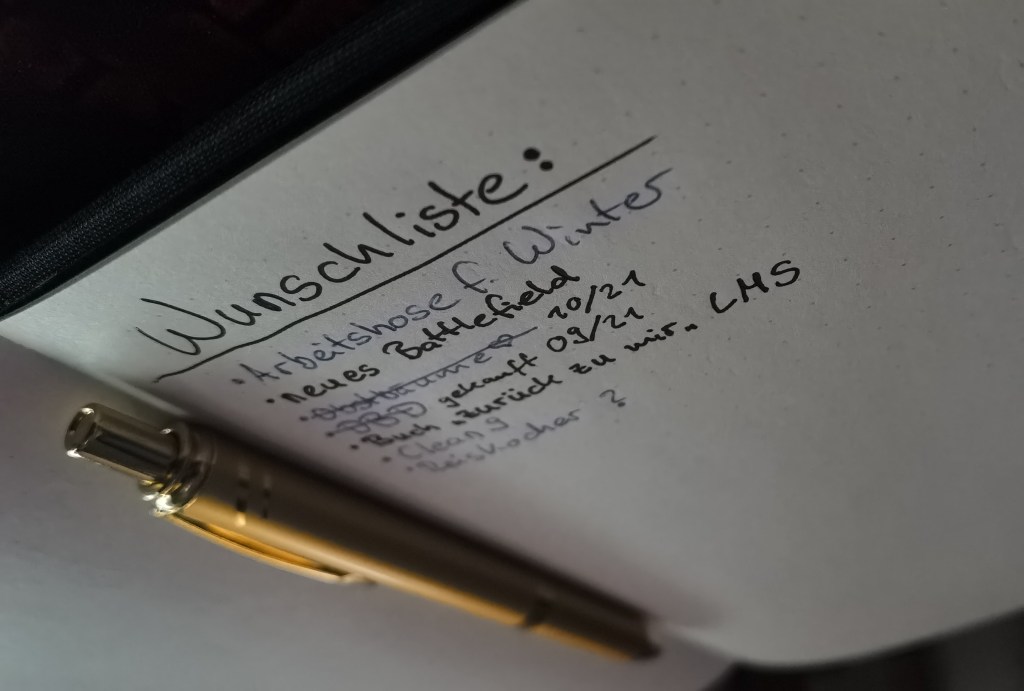 Wunschliste:
• Arbeitshose f. Winter
• neues Battlefield
• Obstbäume 10/21
• DBD gekauft 09/21
• Buch „zurück zu mir“ LMS
• Clean 9
• Reiskocher ?